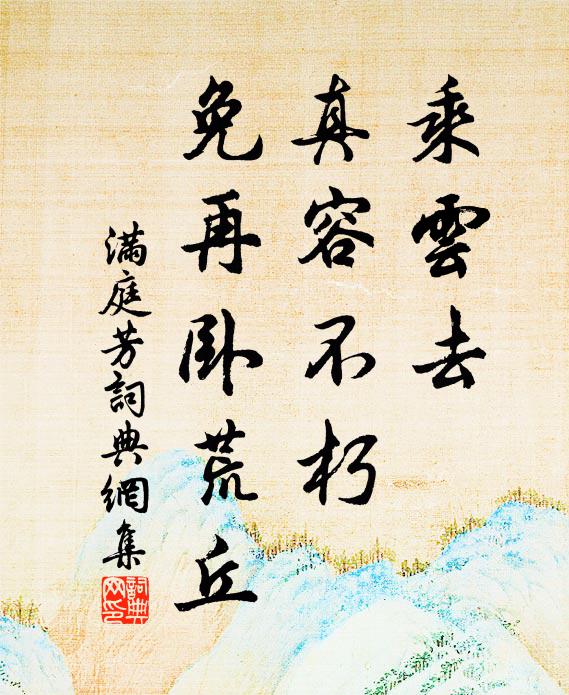 乘雲去
真容不朽
免再卧荒丘
滿庭芳詞典網集
詞典
网印